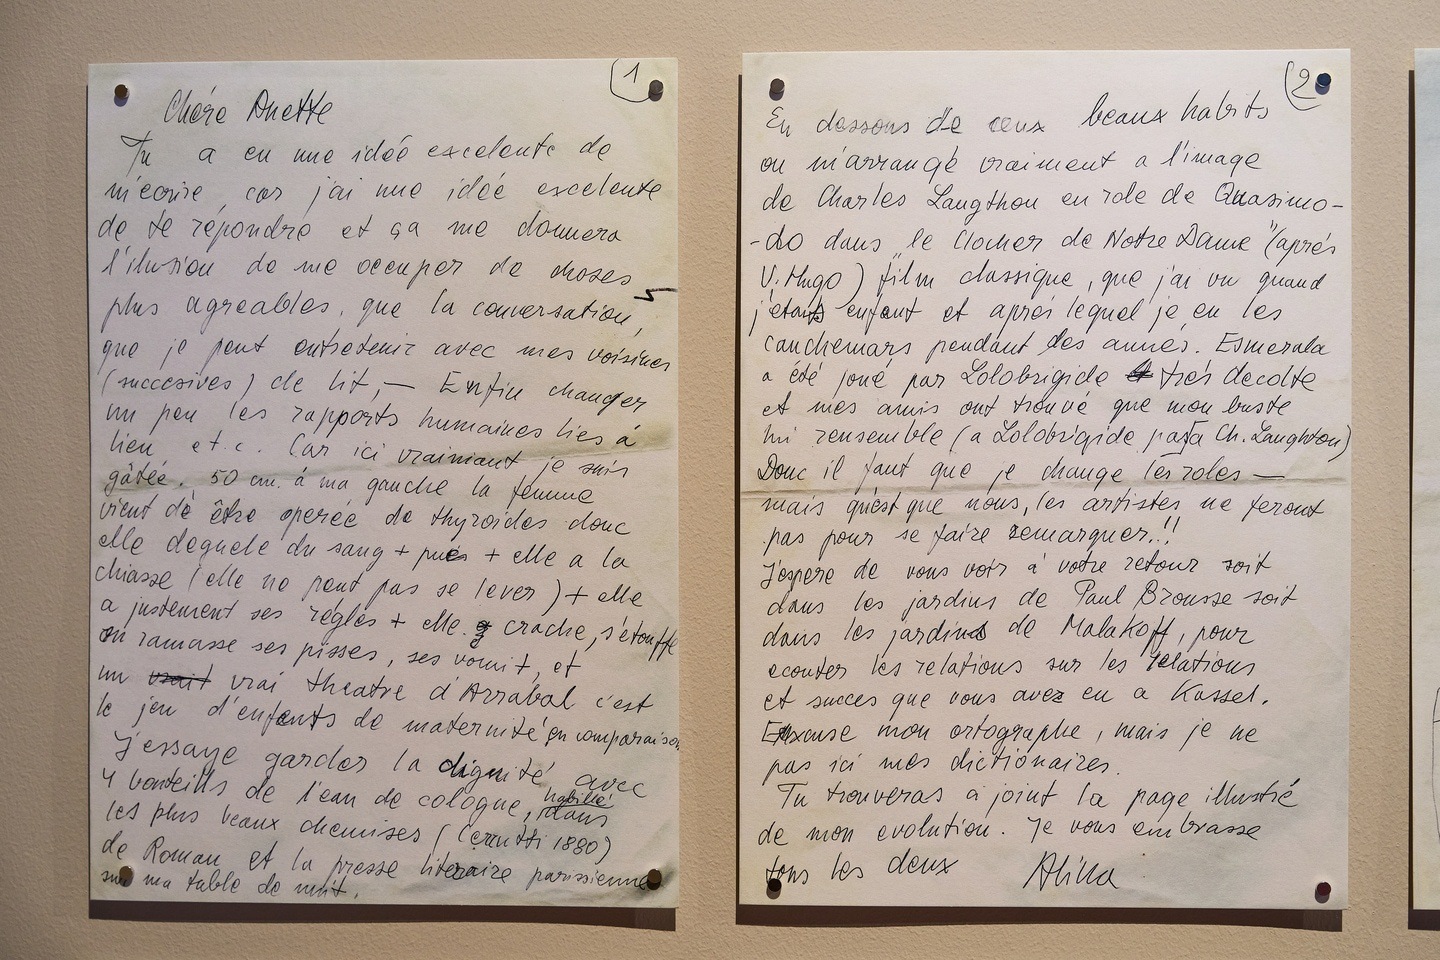 1
Chére Anette
Tu a eu une idée excelente de
m'écrire, car j'ai une idée excelente
de te répondre et ça me donnera
l'ilusion de me occuper de choses
plus agreables, que la conversation,
que je peut entretenir avec mes voisines
(succesives) de lit, — Enfin changer
un peu les rapports humaines lies à
lieu e.t.c. Car ici vraimant je suis
gâtée. 50 cm. á ma gauche la femme
vient dè être operée de thyroides donc
elle deguele du sang + pues + elle a la
chiasse (elle ne peut pas se lever) + elle
a justement ses régles + elle crache, s'étouffe
on ramasse ses pisses, ses vomit, et
un vrai theatre d'Arrabal c'est
le jeu d'enfents de maternité en comparaison
J'essaye garder la dignité avec
4 bouteills de l'eau de cologne, habillé dans
les plus beaux chemises (Cerutti 1880)
de Roman et la presse literaire parissienne
sur ma table de nuit.
2
En dessous de ceux beaux habits
on m'arrangé vraiment a l'image
de Charles Laugthon en role de Quasimo-
-do dans "le Clocher de Notre Dame" (aprés
V. Hugo) film classique, que j'ai vu quand
j'étant enfant et aprés lequel je eu les
cauchemars pendant des annés. Esmerala
a été joué par Lolobrigide trés decolte
et mes amis ont trouvé que mon buste
lui rensemble (a Lolobrigide pas a Ch. Laughton)
Donc il faut que je change les roles —
mais qu'est que nous, les artistes ne feront
pas pour se faire remarquer!!
J'espere de vous voir à votre retour soit
dans les jardins de Paul Brousse soit
dans les jardins de Malakoff, pour
ecouter les relations sur les relations
et succes que vous avez eu a Kassel.
Excuse mon ortographe, mais je ne
pas ici mes dictionaires.
Tu trouveras a joint la page illustré
de mon evolution. Je vous embrasse
tous les deux Alina